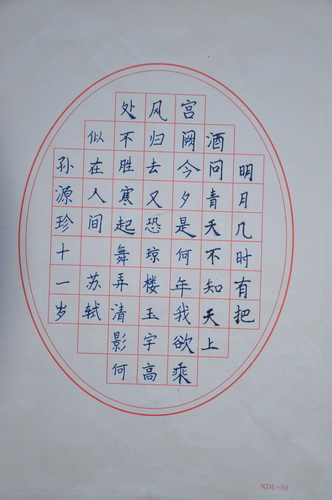 明月几时有把
酒问青天不知天上
宫阙今夕是何年我欲乘
风归去又恐琼楼玉宇高
处不胜寒起舞弄清影何
似在人间 苏轼
孙源珍十一岁